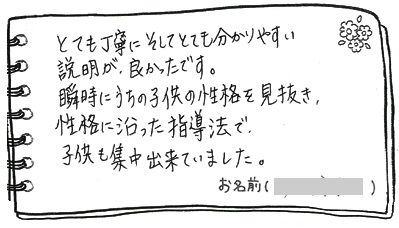 とても丁寧にそしてとても分かりやすい
説明が、良かったです。
瞬時にうちの子供の性格を見抜き、
性格に沿った指導法で、
子供も集中出来ていました。
お名前( )